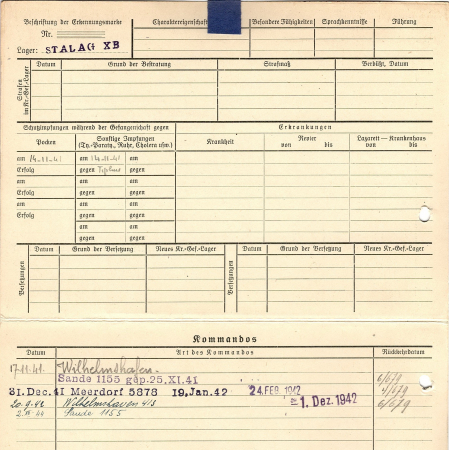 Beschriftung der Erkennungsmarke Charaktereigenschaft Besondere Fähigkeiten Sprachkenntnisse Führung
Nr.
Lager: STALAG XB
Strafen im Kr.-Gef.-Lager Datum Grund der Bestrafung Strafmaß Verbüßt, Datum
Schutzimpfungen während der Gefangenschaft gegen Erkrankungen
Pocken Sonstige Impfungen (Ty.-Paraty., Ruhr, Cholera usw.) Krankheit Revier von bis Lazarett – Krankenhaus von bis
am 14.11.41 am 14.11.41 am
Erfolg gegen Typhus gegen
am am am
Erfolg gegen gegen
am am am
Erfolg gegen gegen
am am
gegen gegen
Versetzungen Datum Grund der Versetzung Neues Kr.-Gef.-Lager Versetzungen Datum Grund der Versetzung Neues Kr.-Gef.-Lager
Kommandos
Datum Art des Kommandos Rückkehrdatum
17.11.41. Wilhelmshafen.
Sande 1155 gep.25.XI.41
31. Dec. 41 Meerdorf 5878 19. Jan. 42 24. FEB. 1942 1. Dez. 1942
Wilhelmshaven
Sande 1155